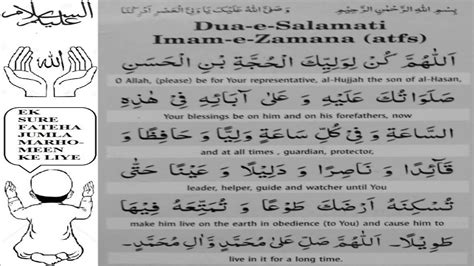 السلام عليكم
الله
EK
SURE
FATEHA
JUMLA
MARHO-
MEEN
KE LIYE
بِسْمِ اللهِ الرَّحْمٰنِ الرَّحِيْمِ
Dua-e-Salamati
Imam-e-Zamana (atfs)
اَللّٰهُمَّ كُنْ لِوَلِيِّكَ الْحُجَّةِ بْنِ الْحَسَنِ
O Allah, (please) be for Your representative, al-Hujjah the son of al-Hasan,
صَلَوَاتُكَ عَلَيْهِ وَ عَلٰى اٰبَائِهِ فِىْ هٰذِهِ
Your blessings be on him and on his forefathers, now
السَّاعَةِ وَ فِىْ كُلِّ سَاعَةٍ وَلِيًّا وَ حَافِظًا وَ
and at all times , guardian, protector,
قَآئِدًا وَ نَاصِرًا وَ دَلِيْلًا وَ عَيْنًا حَتّٰى
leader, helper, guide and watcher until You
تُسْكِنَهُ اَرْضَكَ طَوْعًا وَ تُمَتِّعَهُ فِيْهَا
make him live on the earth in obedience (to You) and cause him to
طَوِيْلًا۔ اَللّٰهُمَّ صَلِّ عَلٰى مُحَمَّدٍ وَّاٰلِ مُحَمَّدٍ۔
live in it for a long time.